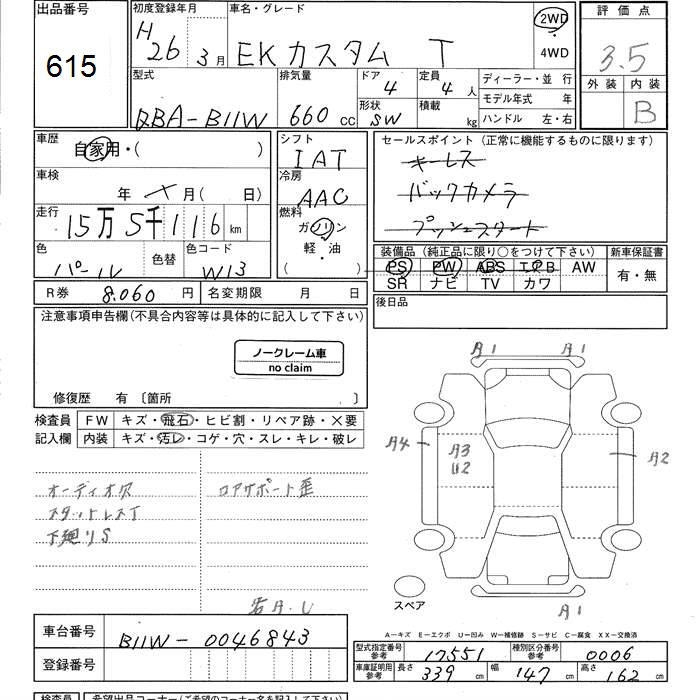 出品番号
615
初度登録年月
H
26 3月
車名・グレード
EKカスタム T
2WD
・
4WD
評価点
3.5
外装 内装
B
型式
DBA-B11W
排気量
660 cc
ドア
4
形状
SW
定員
4 人
積載
kg
ディーラー・並 行
モデル年式 年
ハンドル 左・右
車歴
自家用・( )
車検
年 月( 日)
走行
15万5千116 km
色
パール
色替
色コード
W13
シフト
IAT
冷房
AAC
燃料
ガソリン
軽・油
( )
セールスポイント(正常に機能するものに限ります)
キーレス
バックカメラ
プッシュスタート
装備品(純正品に限り○をつけて下さい)
PS PW ABS エアB AW
SR ナビ TV カワ
新車保証書
有・無
R券 8,060 円
名変期限 月 日
後日品
注意事項申告欄(不具合内容等は具体的に記入して下さい)
ノークレーム車
no claim
修復歴 有〔箇所 〕
検査員
記入欄
FW キズ・飛石・ヒビ割・リペア跡・×要
内装 キズ・汚レ・コゲ・穴・スレ・キレ・破レ
オーディオ欠
スタットレスT
下廻りS
コアサポート歪
A1 A1
A4
A3
U2
A2
A1
スペア
A-キズ E-エクボ U-凹み W-補修跡 S-サビ C-腐食 XX-交換済
車台番号
B11W-0046843
登録番号
型式指定番号
参考
17551
種別区分番号
参考
0006
車庫証明用
参考
長さ 339 cm
幅 147 cm
高さ 162 cm
検査員
希望出品コーナー